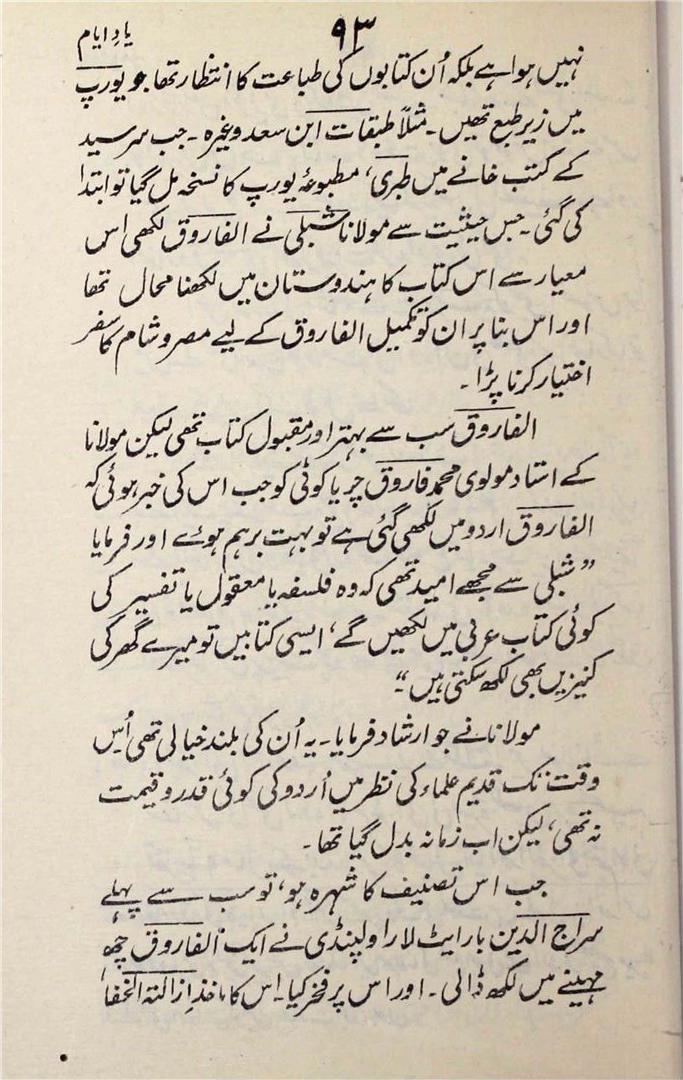 ۹۳
یادِ ایام
نہیں ہوا ہے بلکہ اُن کتابوں کی طباعت کا انتظار تھا جو یورپ
میں زیر طبع تھیں۔ مثلاً طبقات ابن سعد وغیرہ۔ جب سرسید
کے کتب خانے میں طبری، مطبوعۂ یورپ کا نسخہ مل گیا تو ابتدا
کی گئی۔ جس حیثیت سے مولانا شبلی نے الفاروق لکھی اس
معیار سے اس کتاب کا ہندوستان میں لکھنا محال تھا
اور اس بنا پر ان کو تکمیل الفاروق کے لیے مصر و شام کا سفر
اختیار کرنا پڑا۔
الفاروق سب سے بہتر اور مقبول کتاب تھی لیکن مولانا
کے استاد مولوی محمد فاروق چریا کوٹی کو جب اس کی خبر ہوئی کہ
الفاروق اردو میں لکھی گئی ہے تو بہت برہم ہوئے اور فرمایا
”شبلی سے مجھے امید تھی کہ وہ فلسفہ یا معقول یا تفسیر کی
کوئی کتاب عربی میں لکھیں گے، ایسی کتابیں تو میرے گھر کی
کنیزیں بھی لکھ سکتی ہیں“۔
مولانا نے جو ارشاد فرمایا۔ یہ اُن کی بلند خیالی تھی اُس
وقت تک قدیم علماء کی نظر میں اُردو کی کوئی قدر و قیمت
نہ تھی، لیکن اب زمانہ بدل گیا تھا۔
جب اس تصنیف کا شہرہ ہو، تو سب سے پہلے
سراج الدین بار ایٹ لا راولپنڈی نے ایک الفاروق چھ
مہینے میں لکھ ڈالی۔ اور اس پر فخر کیا۔ اس کا ماخذ ازالۃ الخفا